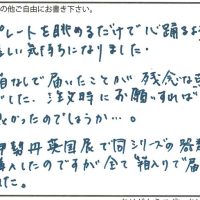 の他ご自由にお書き下さい。
プレートを眺めるだけで心踊るよ
しい気持ちになりました。
箱なしで届いたことが残念な
でした。注文時にお願いすれば
良かったのでしょうか…。
伊勢丹英国展で同シリーズの
購入したのですが全て箱入りで届
した。